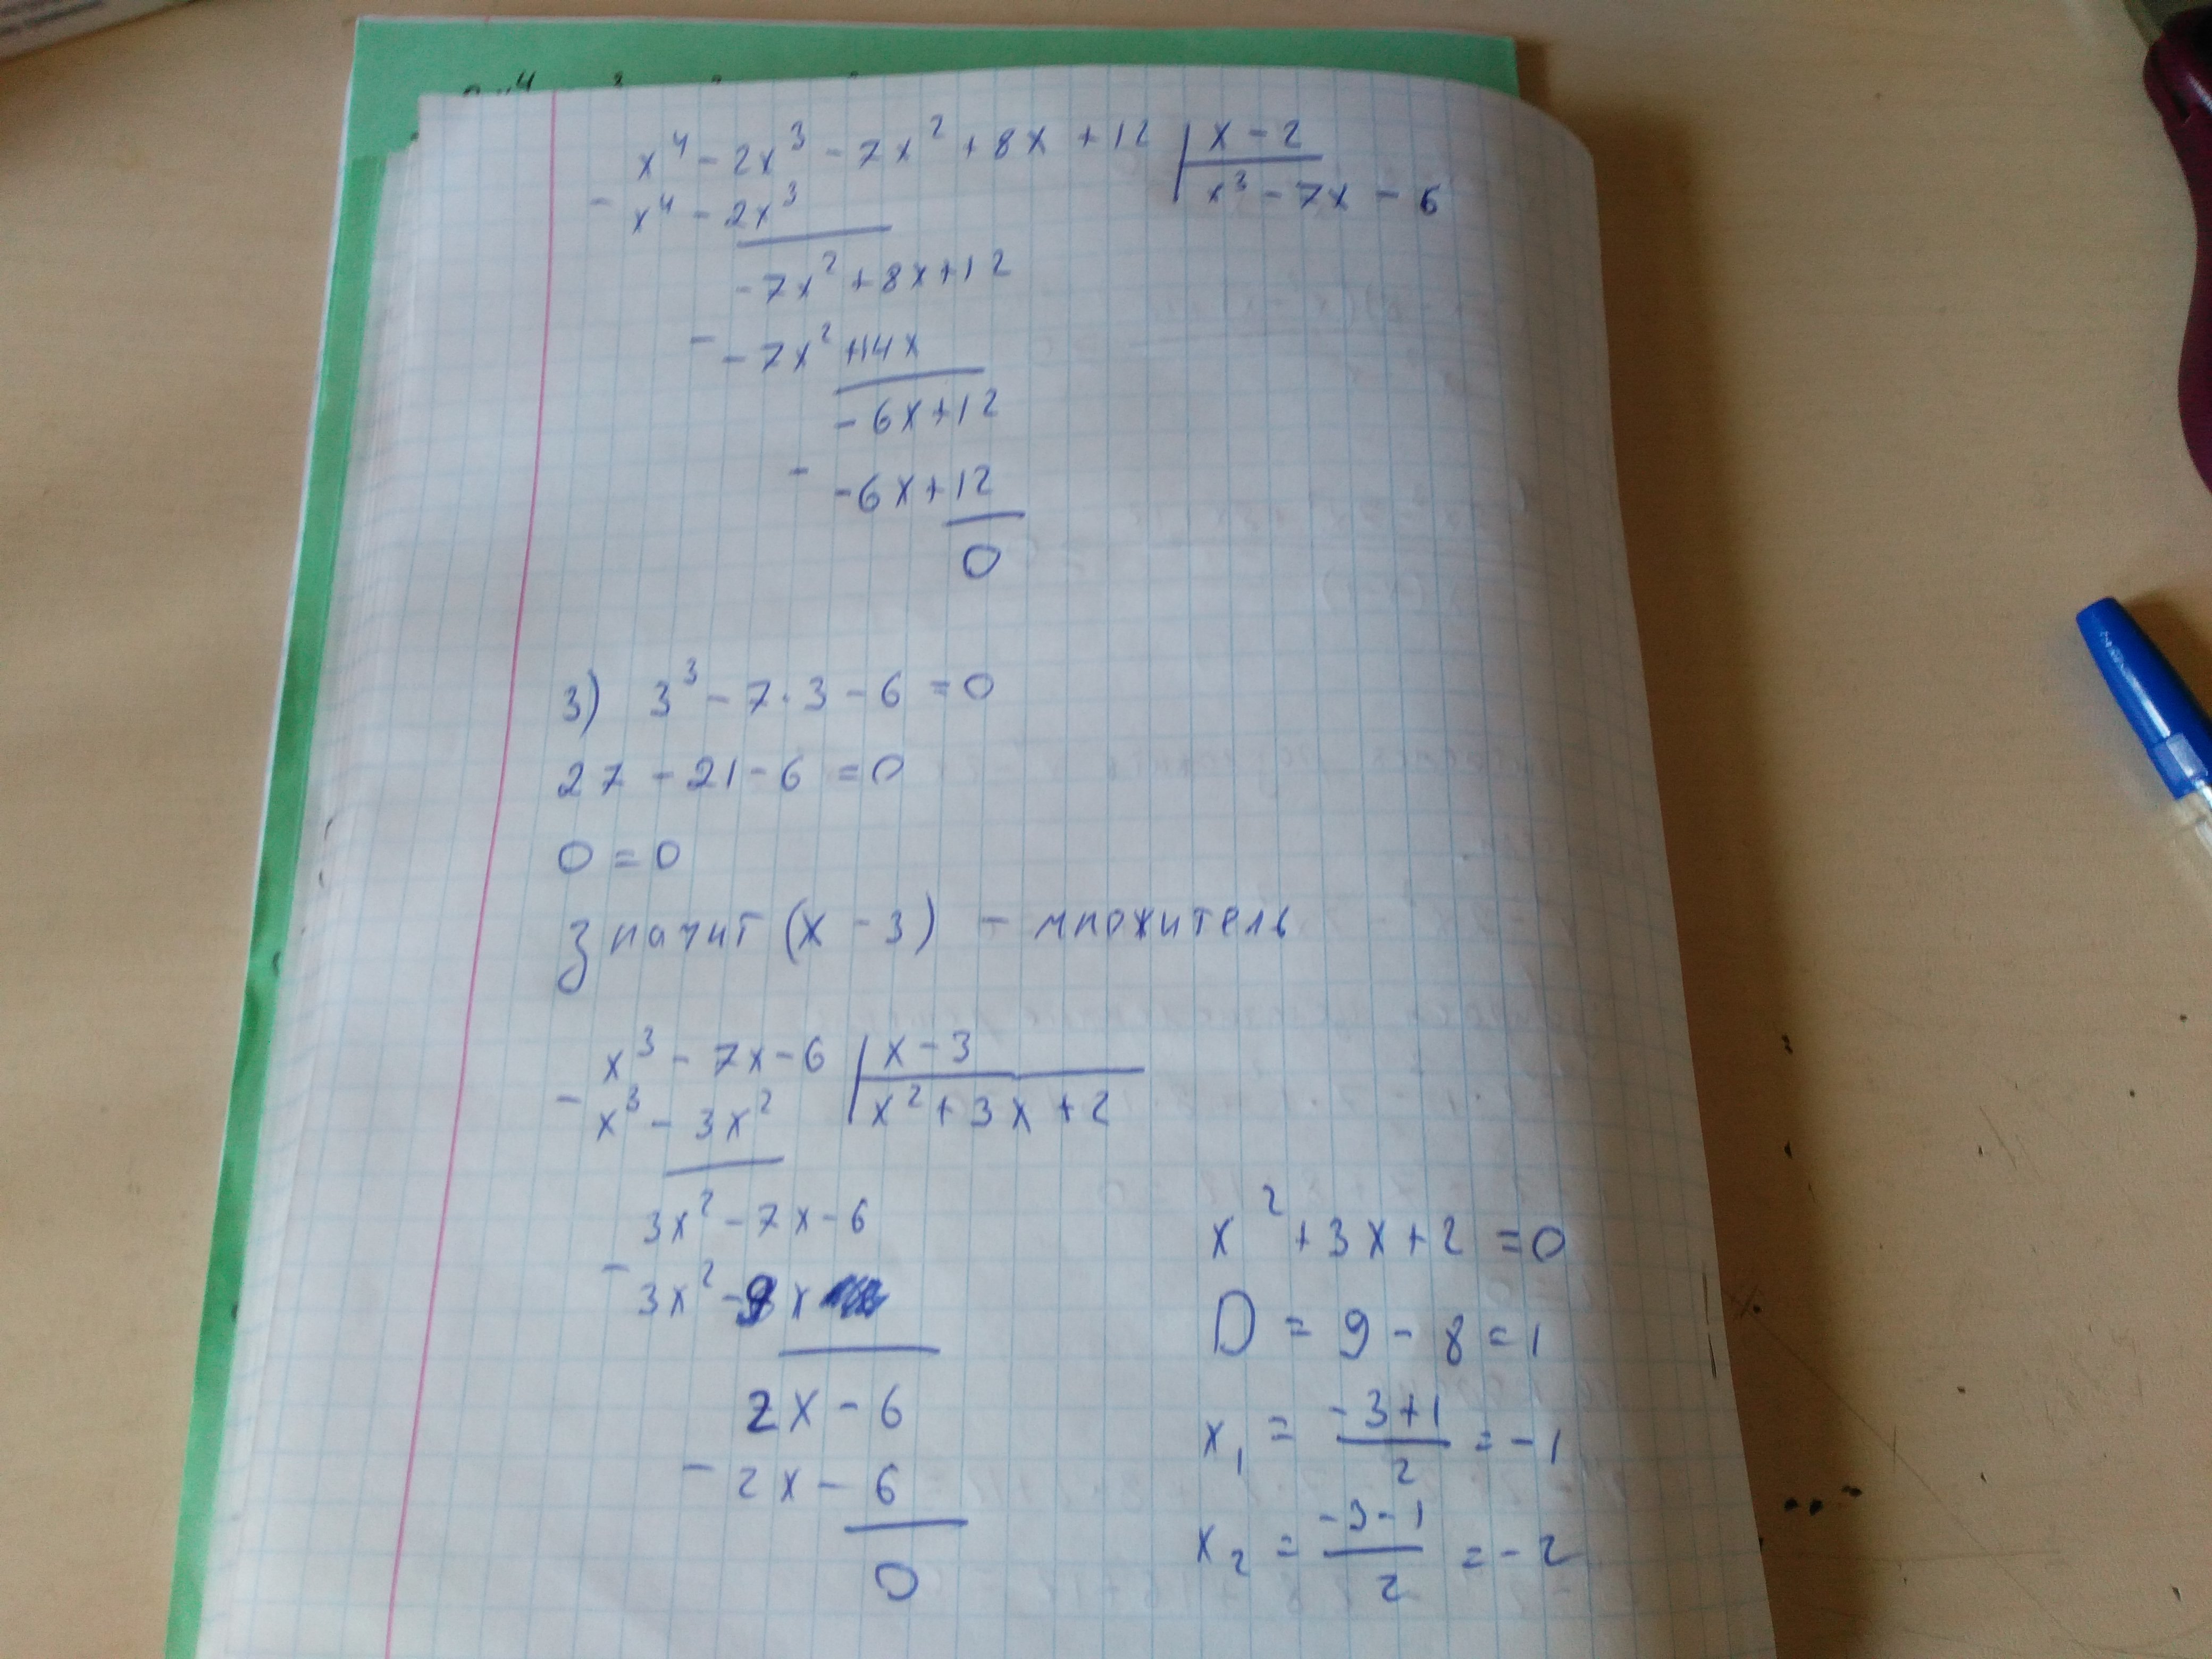 x⁴ - 2x³ - 7x² + 8x + 12 | x - 2
- x⁴ - 2x³ | x³ - 7x - 6
- 7x² + 8x + 12
- - 7x² + 14x
- 6x + 12
- - 6x + 12
0
3) 3³ - 7 · 3 - 6 = 0
27 - 21 - 6 = 0
0 = 0
Значит (x - 3) - множитель
x³ - 7x - 6 | x - 3
- x³ - 3x² | x² + 3x + 2
3x² - 7x - 6
- 3x² - 9x
2x - 6
- 2x - 6
0
x² + 3x + 2 = 0
D = 9 - 8 = 1
x₁ = (-3+1)/2 = -1
x₂ = (-3-1)/2 = -2